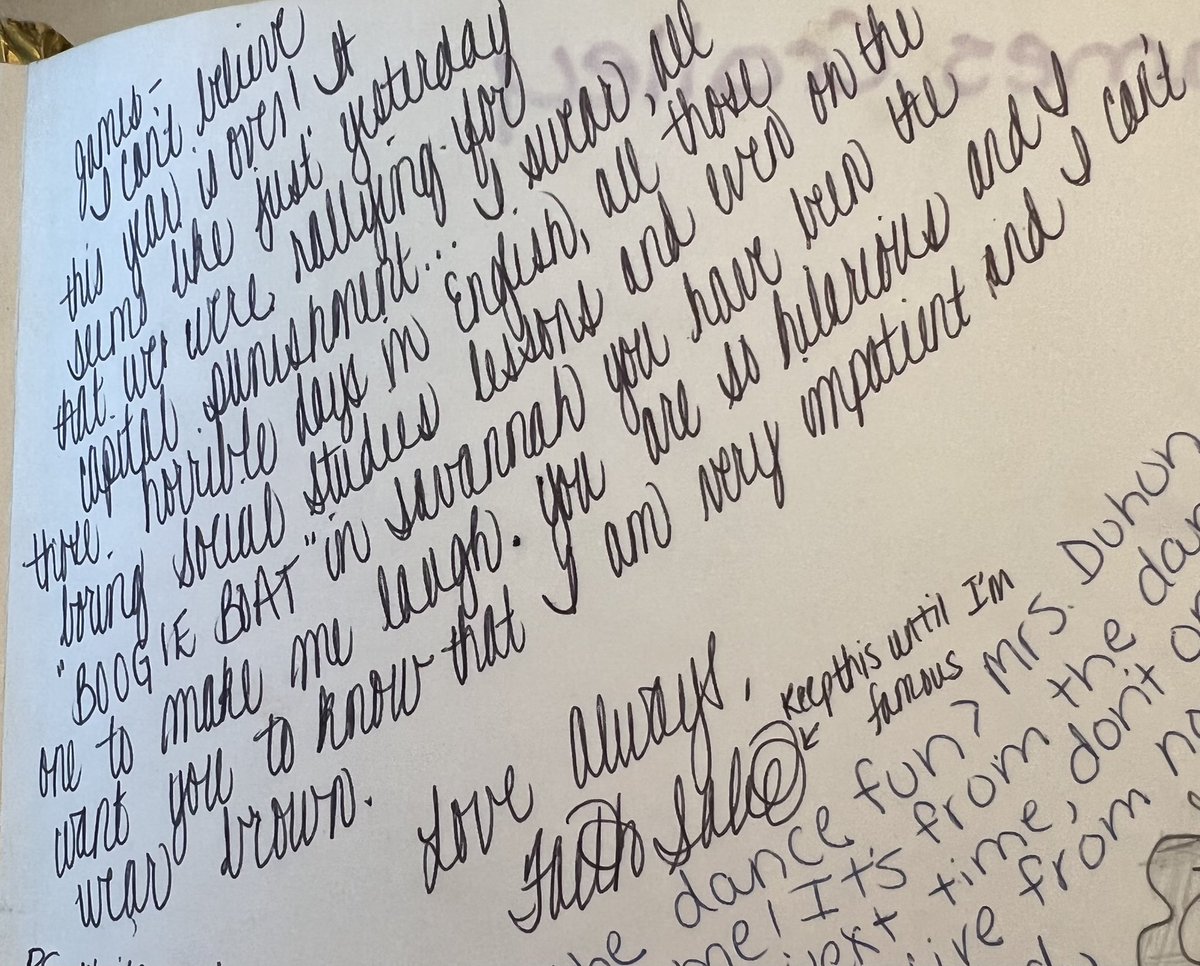 James-
I can't believe
this year is over! It
seems like just yesterday
that we were rallying for
capital punishment... I swear, all
those horrible days in English, all those
boring social studies lessons and even on the
"BOOGIE BOAT" in savannah you have been the
one to make me laugh. you are so hilerious and I
want you to know that I am very impatient and I can't
wear brown.
Love always,
Faith
keep this until I'm
famous
dance fun? Mrs. Duhon
me! It's from the
next time, don't
from